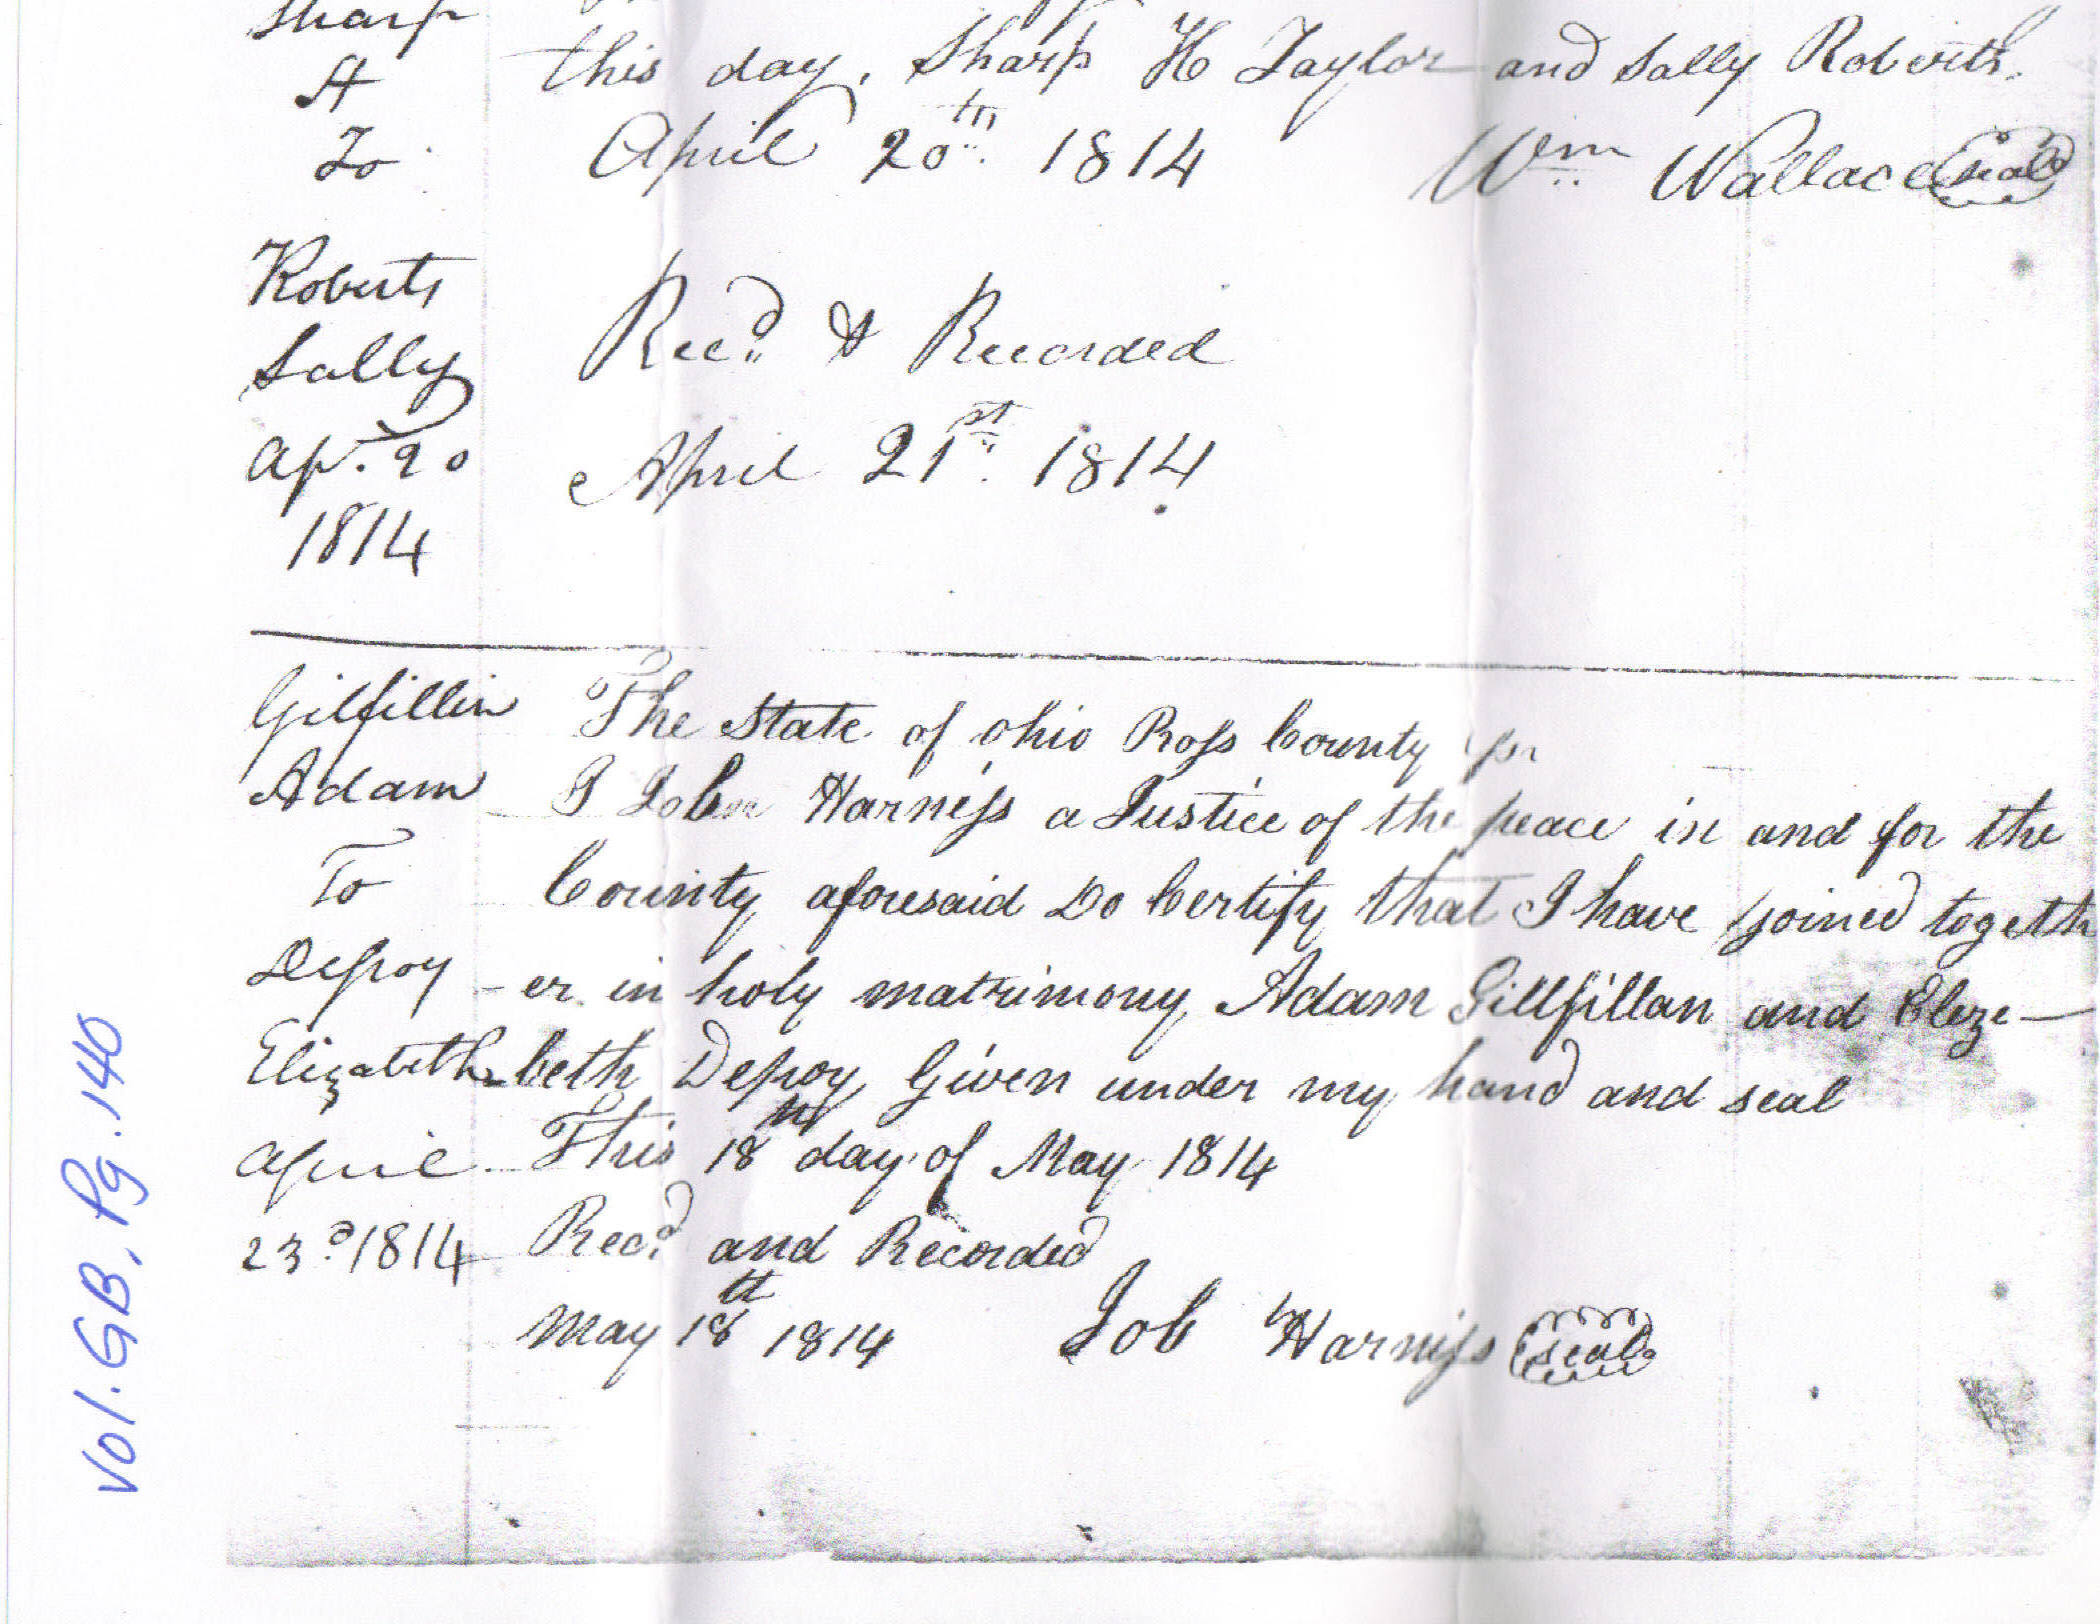 Sharp
H
To
Roberts
Sally
Ap. 20
1814
this day, Sharp H Taylor and Sally Roberts.
April 20th 1814 Wm Wallace seal
Recd & Recorded
April 21st 1814
Gilfillin
Adam
To
Depoy
Elizabeth
April
23d 1814
The State of Ohio Ross County
I Job Harness a Justice of the peace in and for the
County aforesaid Do Certify that I have joined togeth
-er in holy matrimony Adam Gillfillan and Eleze-
beth Depoy Given under my hand and seal
This 18 day of May 1814
Recd and Recorded
May 18th 1814 Job Harness seal
Vol. GB, Pg. 140